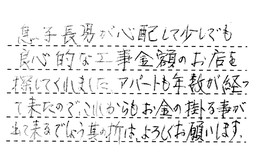 息子長男が心配して少しでも
良心的な工事金額のお店を
探してくれました。アパートも年数が経っ
て来たので、これからもお金の掛る事が
出て来るでしょう。其の折は、よろしくお願いします。